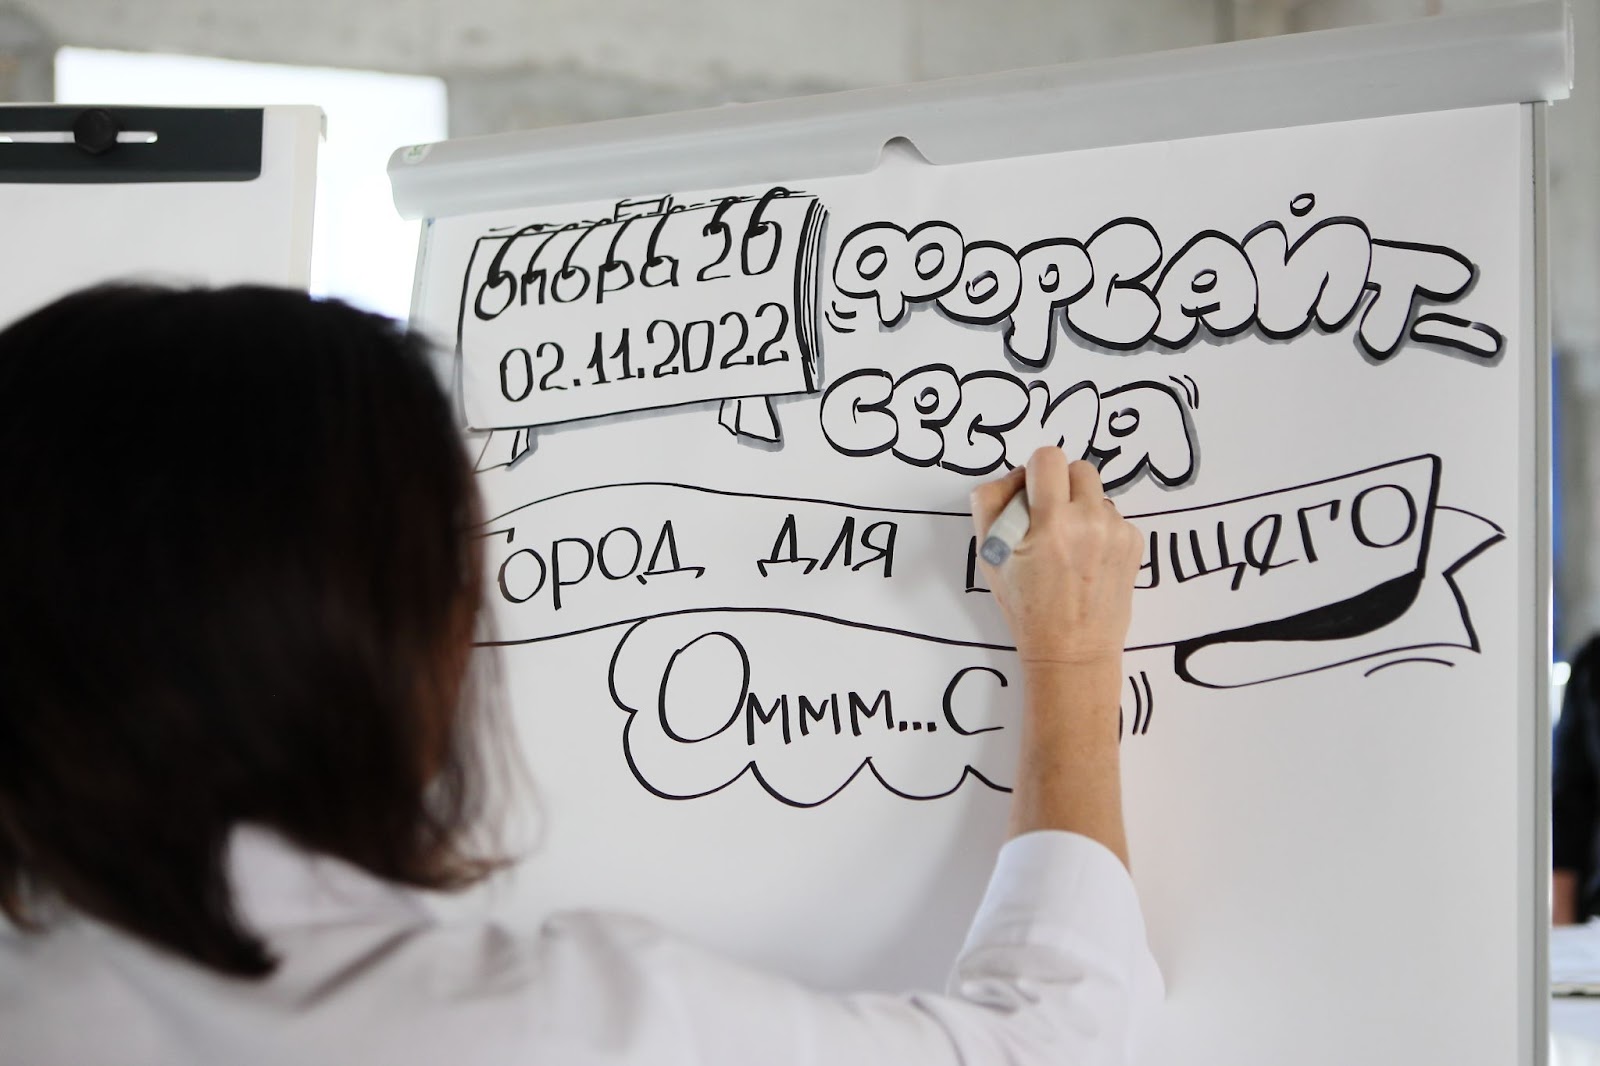 опора 20
02.11.2022
ФОРСАЙТ-
СЕСИЯ
Город для
Оммм...